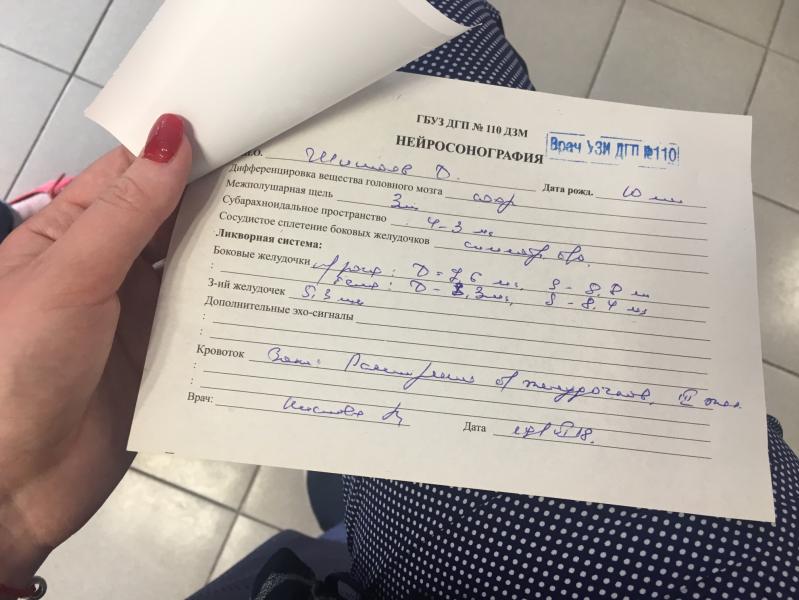 ГБУЗ ДГП № 110 ДЗМ
НЕЙРОСОНОГРАФИЯ
Врач УЗИ ДГП №110
И.О. Д. Дата рожд. 10 ме
Дифференцировка вещества головного мозга сохр
Межполушарная щель 3 мм
Субарахноидальное пространство 4-3 мм
Сосудистое сплетение боковых желудочков симметр.
Ликворная система:
Боковые желудочки рога: D = 7,6 мм, S -
: D - 3 мм, S - 8,4 мм
3-ий желудочек 5,3 мм
Дополнительные эхо-сигналы
:
:
Кровоток Закл: Расширение б/желудочков, III жел.
:
:
Врач:
Дата 18.